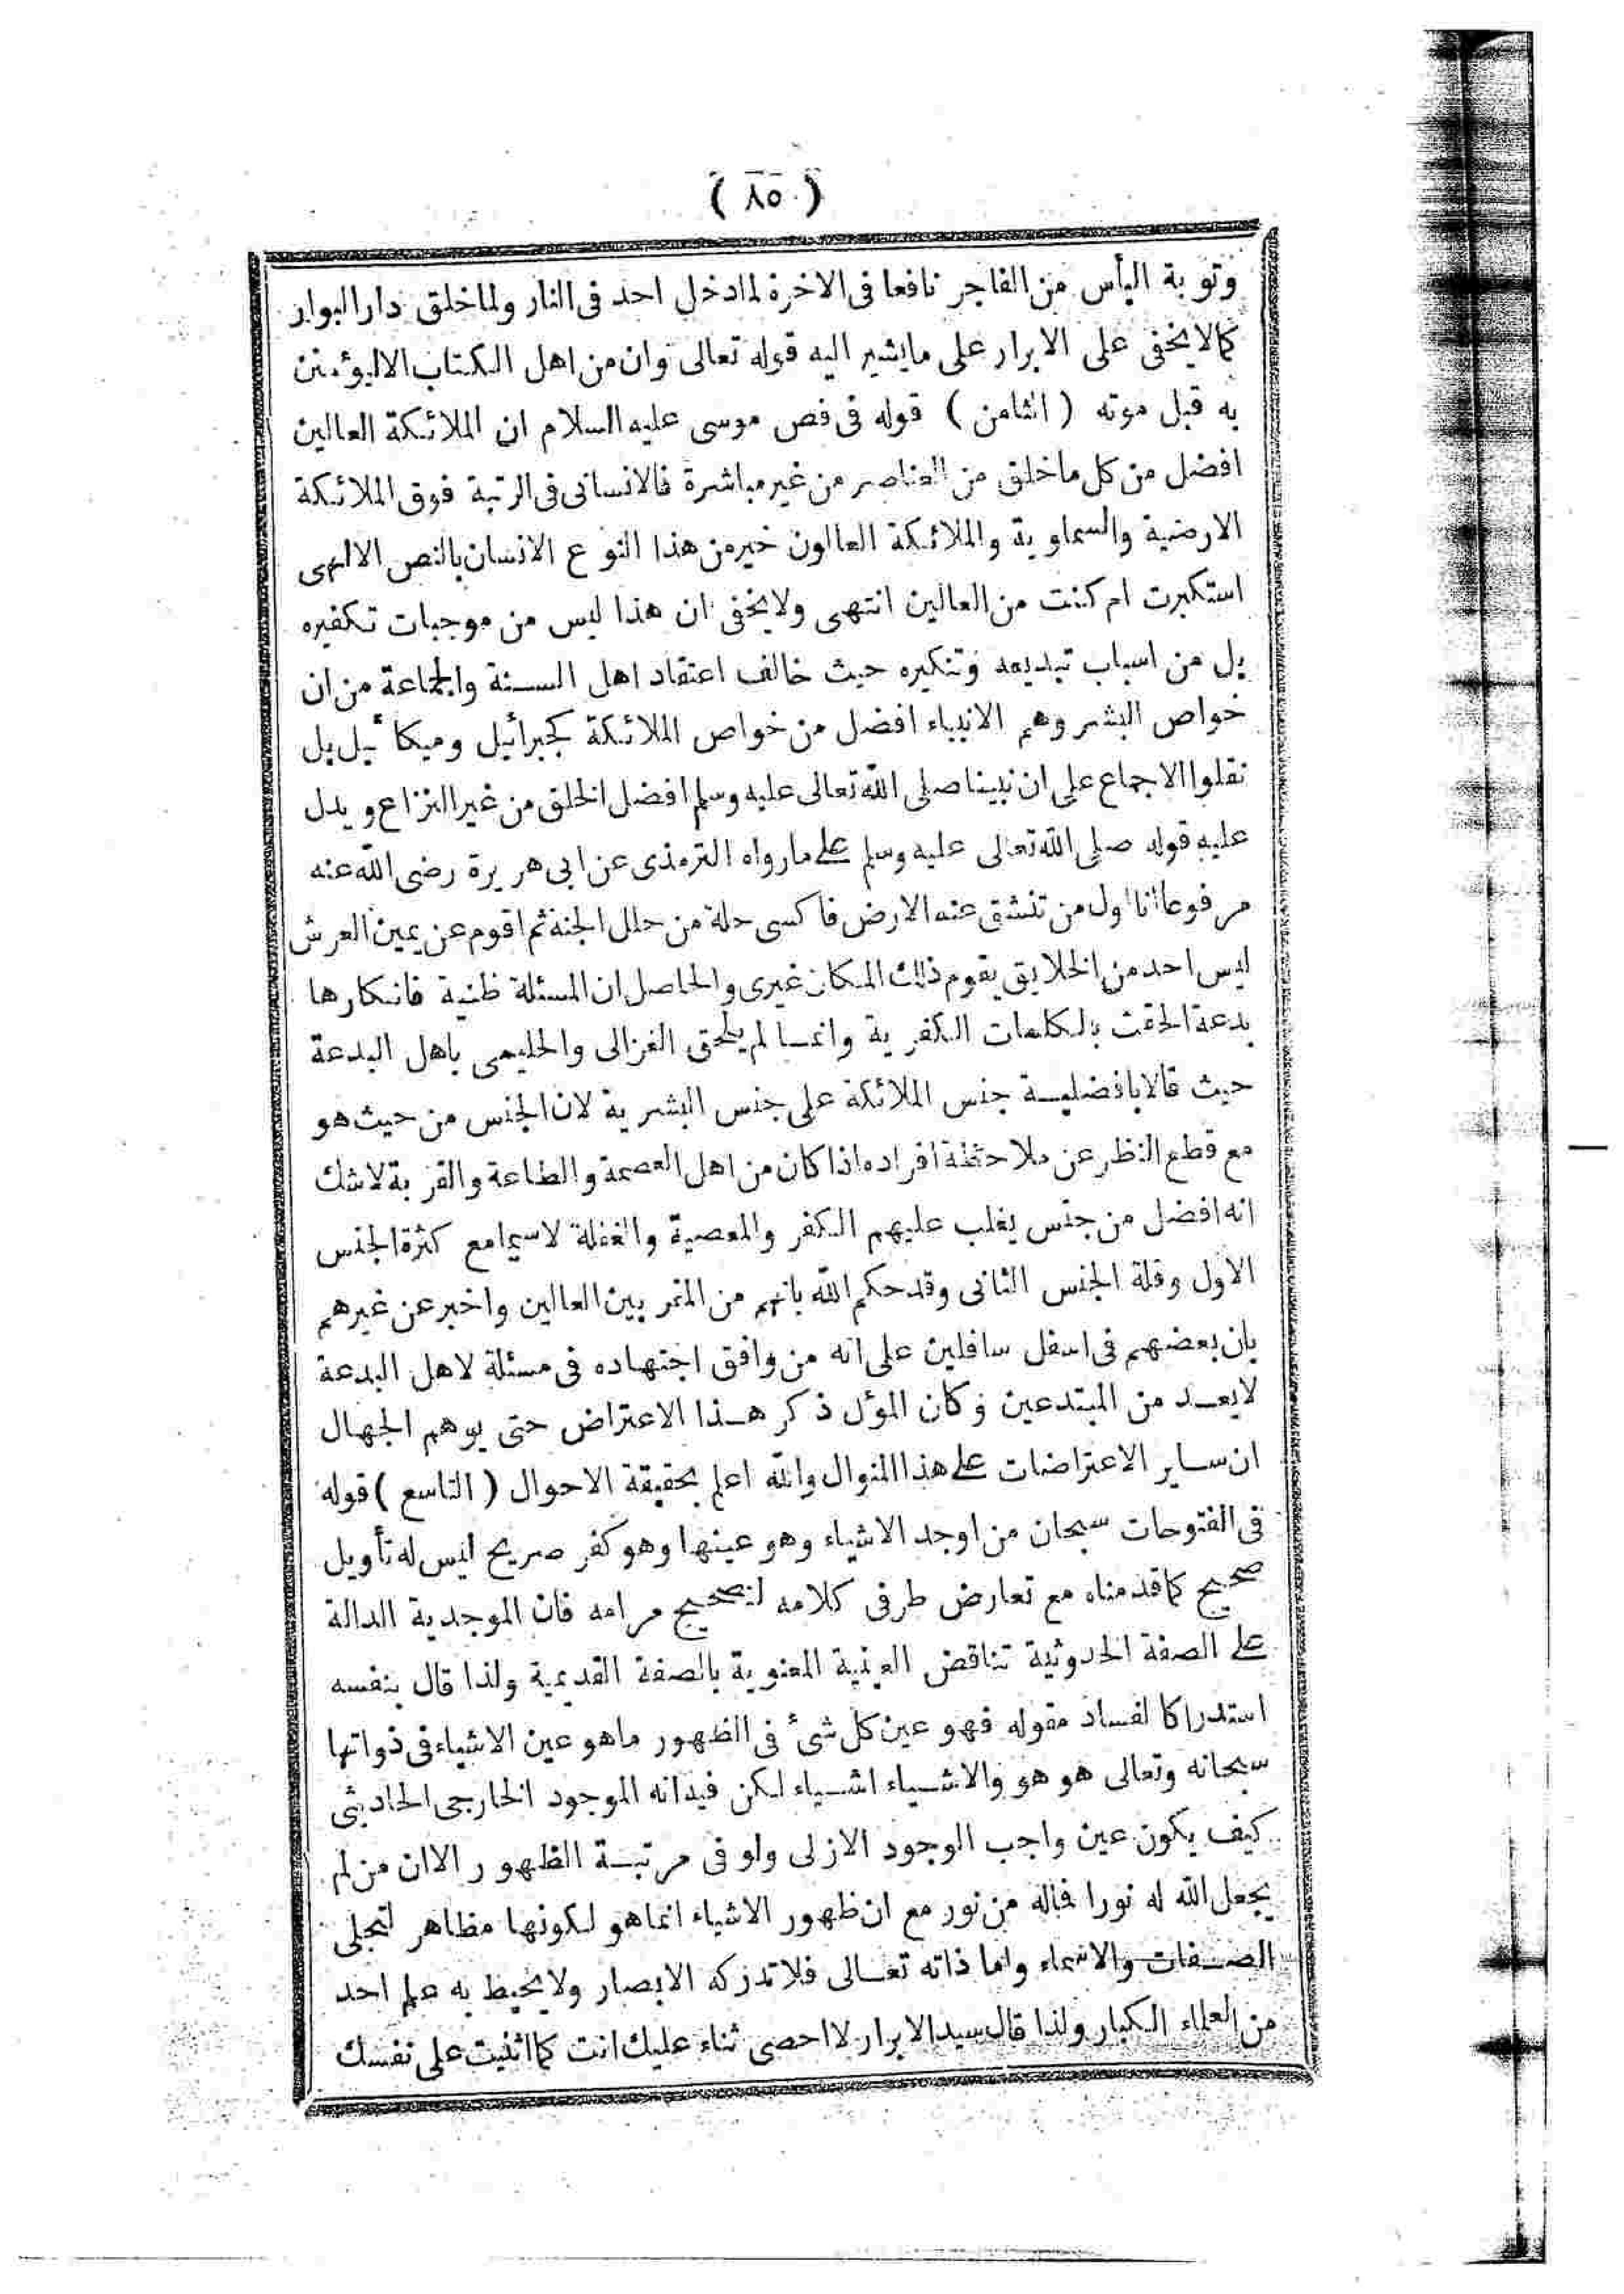 ( ٨٥ )
وتوبة اليأس من الفاجر نافعا فى الاخرة لما دخل احد فى النار ولما خلق دار البوار
كما لا يخفى على الابرار على ما يشير اليه قوله تعالى وان من اهل الكتاب الا ليؤمنن
به قبل موته ( الثامن ) قوله فى فص موسى عليه السلام ان الملائكة العالين
افضل من كل ما خلق من العناصر من غير مباشرة فالانسانى فى الرتبة فوق الملائكة
الارضية والسماوية والملائكة العالون خير من هذا النوع الانسان بالنص الالهى
استكبرت ام كنت من العالين انتهى ولا يخفى ان هذا ليس من موجبات تكفيره
بل من اسباب تبديعه وتنكيره حيث خالف اعتقاد اهل السنة والجماعة من ان
خواص البشر وهم الانبياء افضل من خواص الملائكة كجبرائيل وميكائيل بل
نقلوا الاجماع على ان نبينا صلى الله تعالى عليه وسلم افضل الخلق من غير النزاع ويدل
عليه قوله صلى الله تعالى عليه وسلم على ما رواه الترمذى عن ابى هريرة رضى الله عنه
مرفوعا انا اول من تنشق عنه الارض فاكسى حلة من حلل الجنة ثم اقوم عن يمين العرش
ليس احد من الخلايق يقوم ذلك المكان غيرى والحاصل ان المسئلة ظنية فانكارها
بدعة الحقت بالكلمات الكفرية وانما لم يلحق الغزالى والحليمى باهل البدعة
حيث قالا بافضلية جنس الملائكة على جنس البشرية لان الجنس من حيث هو
مع قطع النظر عن ملاحظة افراده اذا كان من اهل العصمة والطاعة والقربة لا شك
انه افضل من جنس يغلب عليهم الكفر والمعصية والغفلة لا سيما مع كثرة الجنس
الاول وقلة الجنس الثانى وقد حكم الله بانهم من المقربين العالين واخبر عن غيرهم
بان بعضهم فى اسفل سافلين على انه من وافق اجتهاده فى مسئلة لاهل البدعة
لا يعد من المبتدعين وكان المؤل ذكر هذا الاعتراض حتى يوهم الجهال
ان ساير الاعتراضات على هذا المنوال والله اعلم بحقيقة الاحوال ( التاسع ) قوله
فى الفتوحات سبحان من اوجد الاشياء وهو عينها وهو كفر صريح ليس له تأويل
صحيح كما قدمناه مع تعارض طرفى كلامه لتصحيح مرامه فان الموجدية الدالة
على الصفة الحدوثية تناقض العينية المعنوية بالصفة القديمية ولذا قال بنفسه
استدراكا لفساد مقوله فهو عين كل شئ فى الظهور ما هو عين الاشياء فى ذواتها
سبحانه وتعالى هو هو والاشياء اشياء لكن فيه انه الموجود الخارجى الحادثى
كيف يكون عين واجب الوجود الازلى ولو فى مرتبة الظهور الا ان من لم
يجعل الله له نورا فماله من نور مع ان ظهور الاشياء انما هو لكونها مظاهر لتجلى
الصفات والاسماء واما ذاته تعالى فلا تدركه الابصار ولا يحيط به علم احد
من العلماء الكبار ولذا قال سيد الابرار لا احصى ثناء عليك انت كما اثنيت على نفسك